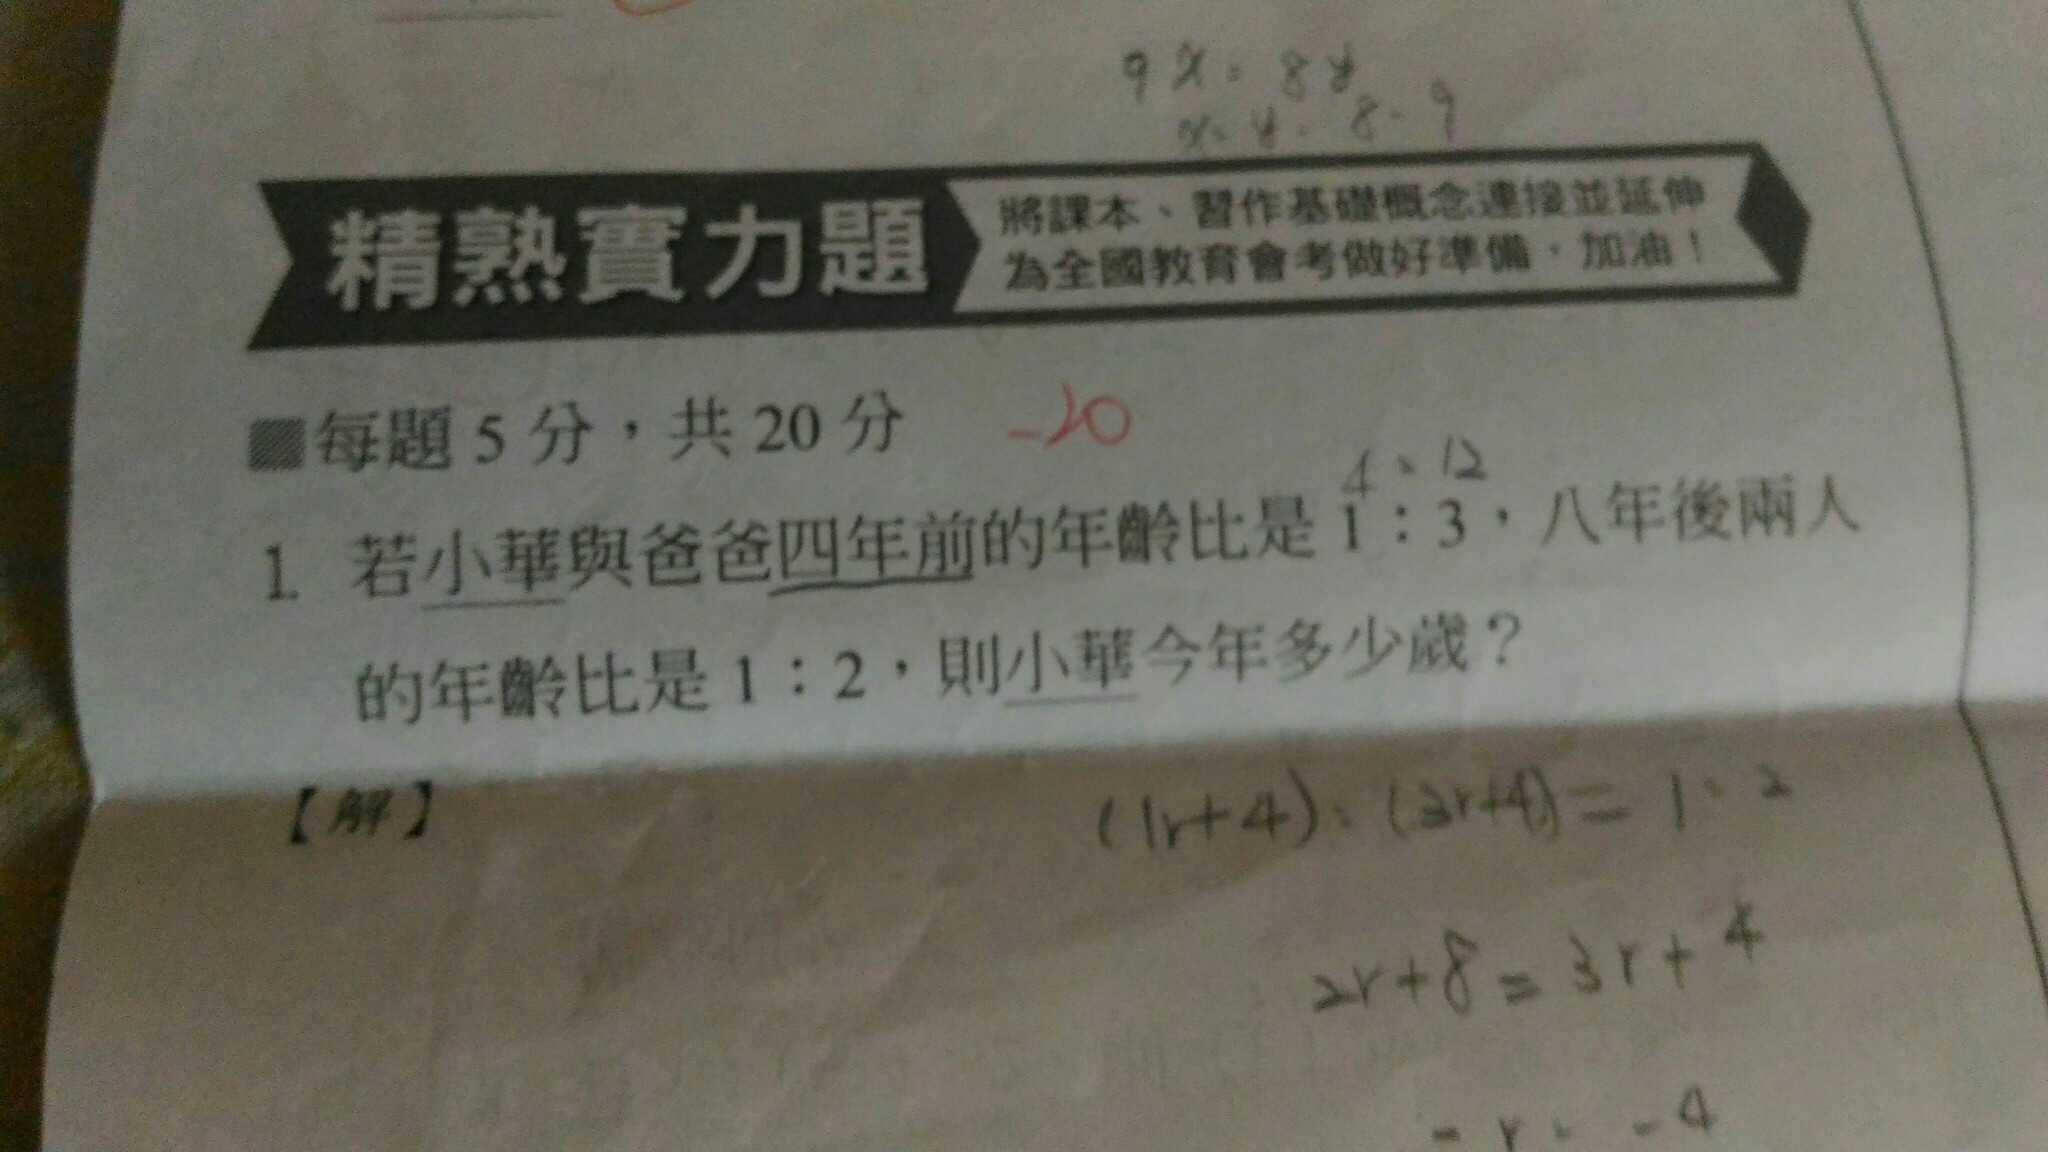 9x = 8y
x = y = 8 - 9
精熟實力題
將課本、習作基礎概念連接並延伸
為全國教育會考做好準備，加油！
每題 5 分，共 20 分 -20
4 : 12
1. 若小華與爸爸四年前的年齡比是 1：3，八年後兩人
的年齡比是 1：2，則小華今年多少歲？
【解】
(1r+4) : (3r+4) = 1 : 2
2r+8 = 3r+4
-r = -4